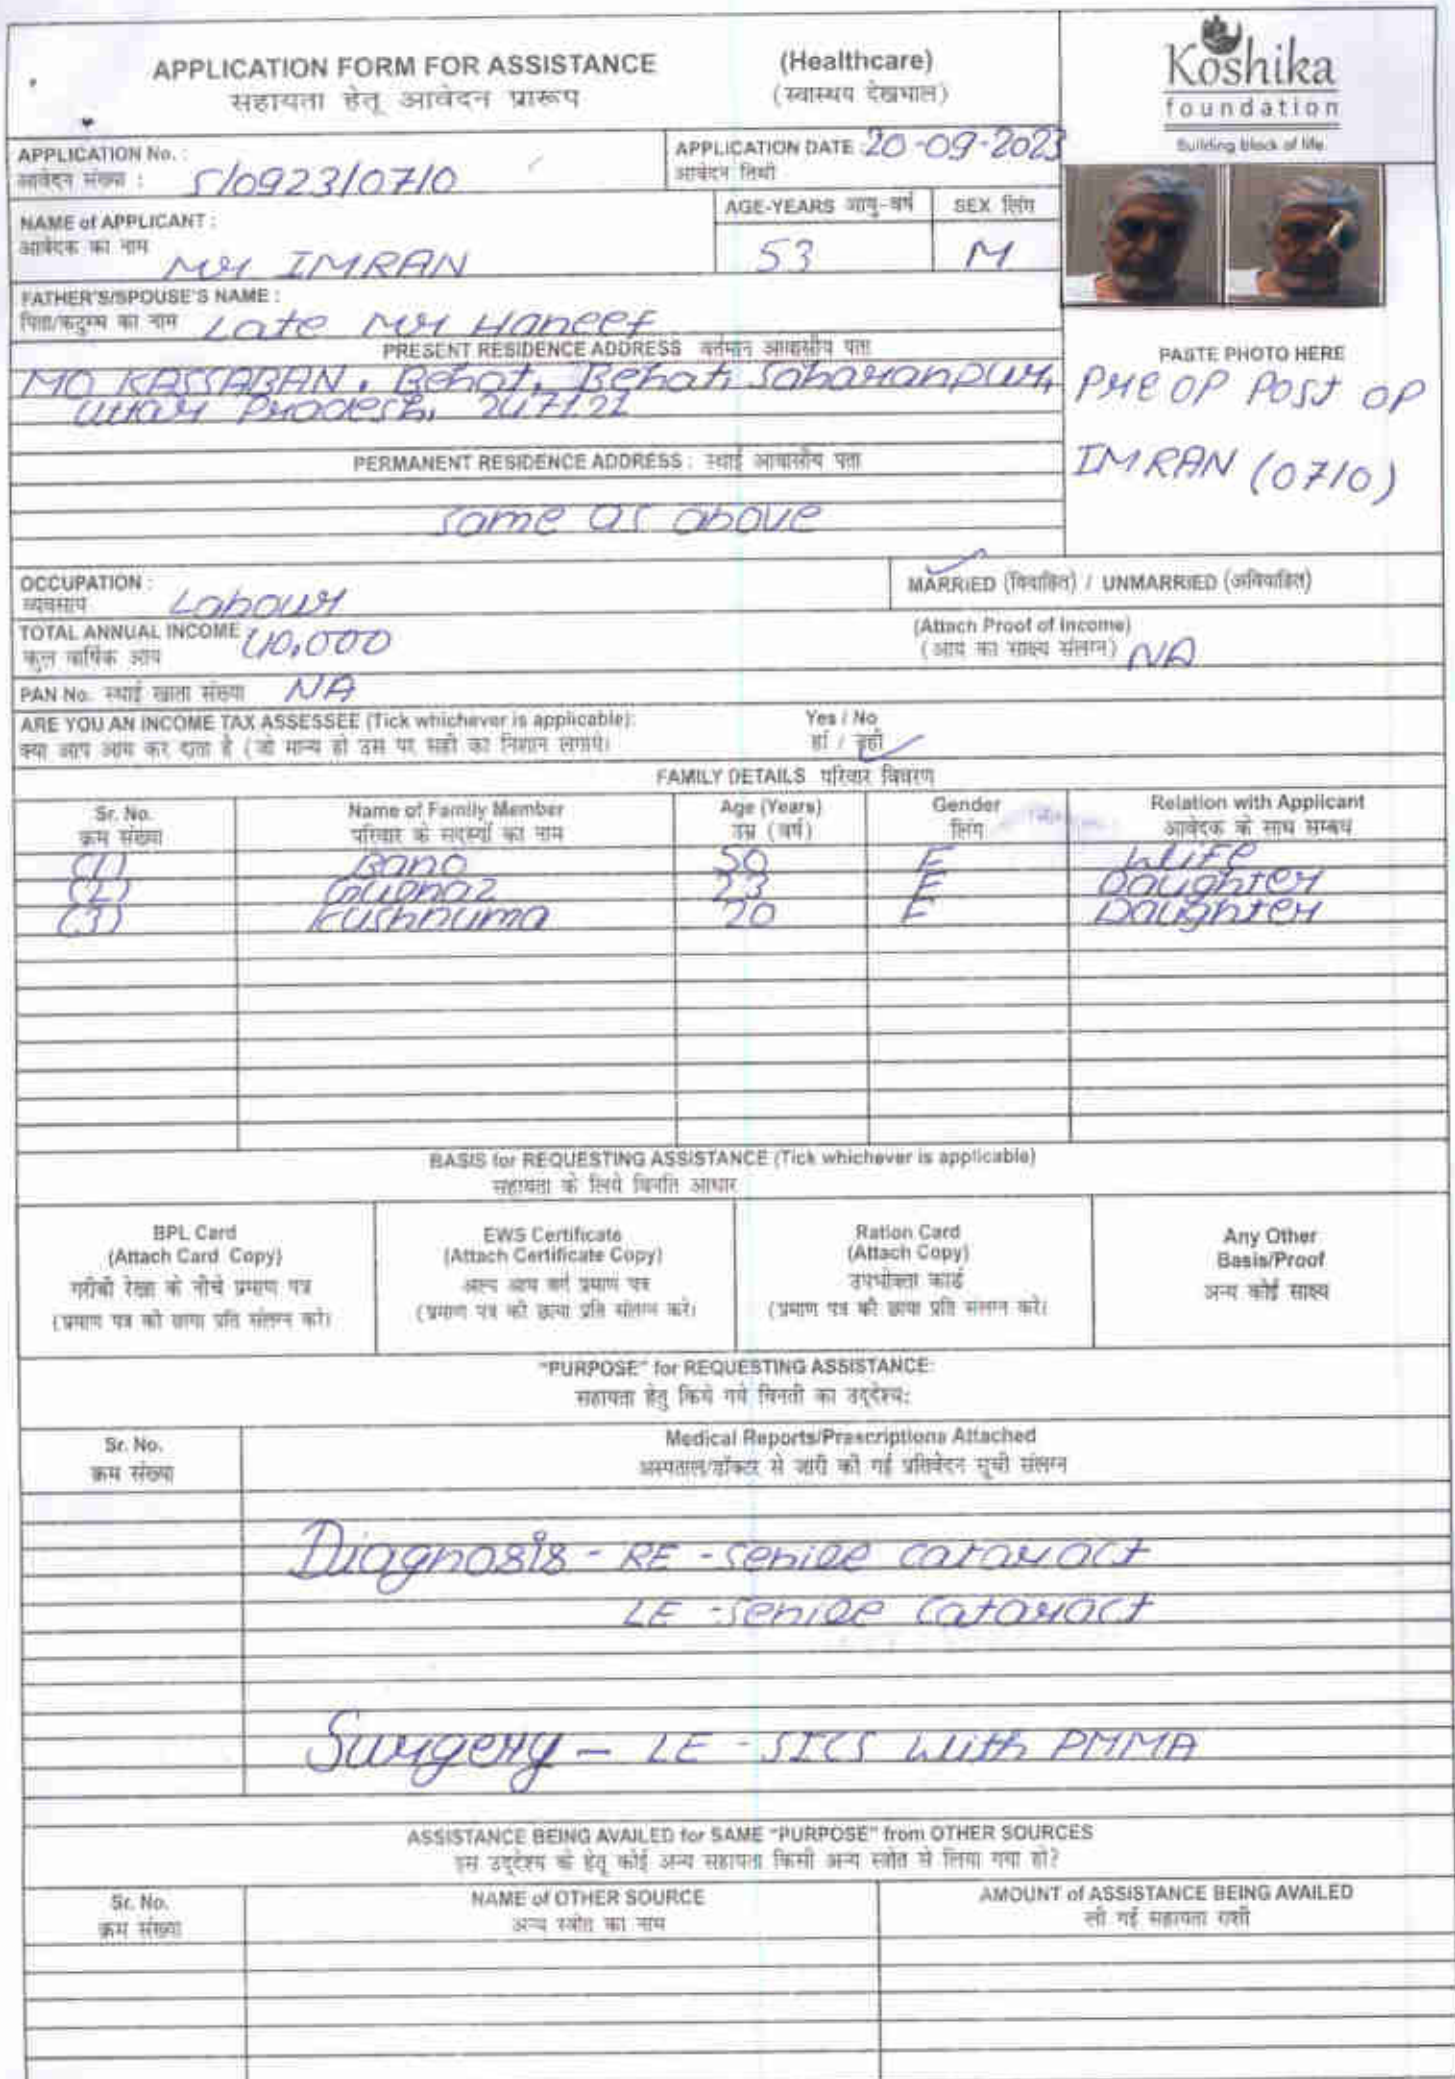 APPLICATION FORM FOR ASSISTANCE (Healthcare)
सहायता हेतू आवेदन प्रारूप (स्वास्थय देखभाल)
Koshika
foundation
Building block of life
APPLICATION No. :
आवेदन संख्या : S/0923/0710
APPLICATION DATE : 20-09-2023
आवेदन तिथी
NAME of APPLICANT :
आवेदक का नाम Mr IMRAN
AGE-YEARS आयु-वर्ष 53
SEX लिंग M
FATHER'S/SPOUSE'S NAME :
पिता/कटुम्ब का नाम Late Mr Haneef
PRESENT RESIDENCE ADDRESS वर्तमान आवासीय पता
MO KASSABAN, Behat, Behat, Saharanpur,
Uttar Pradesh, 247121
PASTE PHOTO HERE
Pre OP Post OP
IMRAN (0710)
PERMANENT RESIDENCE ADDRESS : स्थाई आवासीय पता
same as above
OCCUPATION :
व्यवसाय Labour
MARRIED (विवाहित) / UNMARRIED (अविवाहित)
TOTAL ANNUAL INCOME 40,000
कुल वार्षिक आय
(Attach Proof of Income)
(आय का साक्ष्य संलग्न) NA
PAN No. स्थाई खाता संख्या NA
ARE YOU AN INCOME TAX ASSESSEE (Tick whichever is applicable): Yes / No
क्या आप आय कर दाता है (जो मान्य हो उस पर सही का निशान लगाये। हां / नहीं
FAMILY DETAILS परिवार विवरण
Sr. No. Name of Family Member Age (Years) Gender Relation with Applicant
क्रम संख्या परिवार के सदस्यों का नाम उम्र (वर्ष) लिंग आवेदक के साथ सम्बंध
(1) Bano 50 F Wife
(2) Gulnaz 23 F Daughter
(3) Kushnuma 20 F Daughter
BASIS for REQUESTING ASSISTANCE (Tick whichever is applicable)
सहायता के लिये विनति आधार
BPL Card
(Attach Card Copy)
गरीबी रेखा के नीचे प्रमाण पत्र
(प्रमाण पत्र की छाया प्रति संलग्न करे।
EWS Certificate
(Attach Certificate Copy)
अल्प आय वर्ग प्रमाण पत्र
(प्रमाण पत्र की छाया प्रति संलग्न करे।
Ration Card
(Attach Copy)
उपभोक्ता कार्ड
(प्रमाण पत्र की छाया प्रति संलग्न करे।
Any Other
Basis/Proof
अन्य कोई साक्ष्य
"PURPOSE" for REQUESTING ASSISTANCE:
सहायता हेतु किये गये विनती का उद्देश्य:
Sr. No. Medical Reports/Prescriptions Attached
क्रम संख्या अस्पताल/डॉक्टर से जारी की गई प्रतिवेदन सूची संलग्न
Diagnosis - RE - Senile Cataract
LE - Senile Cataract
Surgery - LE - SICS with PMMA
ASSISTANCE BEING AVAILED for SAME "PURPOSE" from OTHER SOURCES
इस उद्देश्य के हेतू कोई अन्य सहायता किसी अन्य स्त्रोत से लिया गया हो?
Sr. No. NAME of OTHER SOURCE AMOUNT of ASSISTANCE BEING AVAILED
क्रम संख्या अन्य स्त्रोत का नाम ली गई सहायता राशी